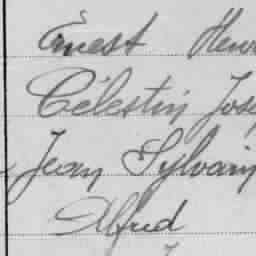 Ernest Henri
Célestin Jose
Jean Sylvain
Alfred